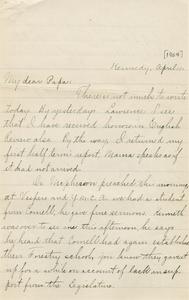 [1904]
Kennedy, April
My dear Papa:
There is not much to write
today. By yesterdays Lawrence I see
that I have received honors in English
Revere also by the way, I returned my
first half term report, Mama speaks as if
it had not arrived.
Dr. McPherson preached this morning
at Vespers and Y.M.C.A. we had a student
from Cornell, he gave fine sermons.
was over to see me this afternoon, he says
he heard that Cornell had again established
their Forestry school, you know they gave it
up for a while on account of lack in sup-
port from the legislature.